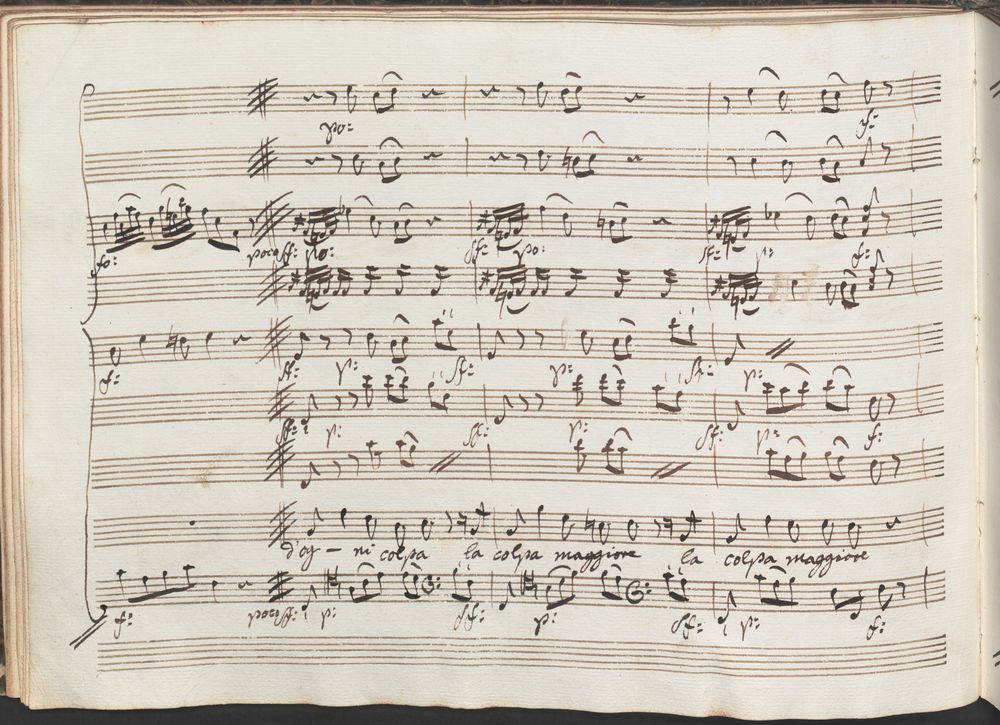 po:
f:
fo: pocoff: po: sf: po: sf: p: f:
f: ff: p: sf: p: sf: p:
sf: p: sf: p: sf: p: f:
d'og - ni colpa la colpa maggiore la colpa maggiore
f: pocoff: p: sf: p: sf: p: f: